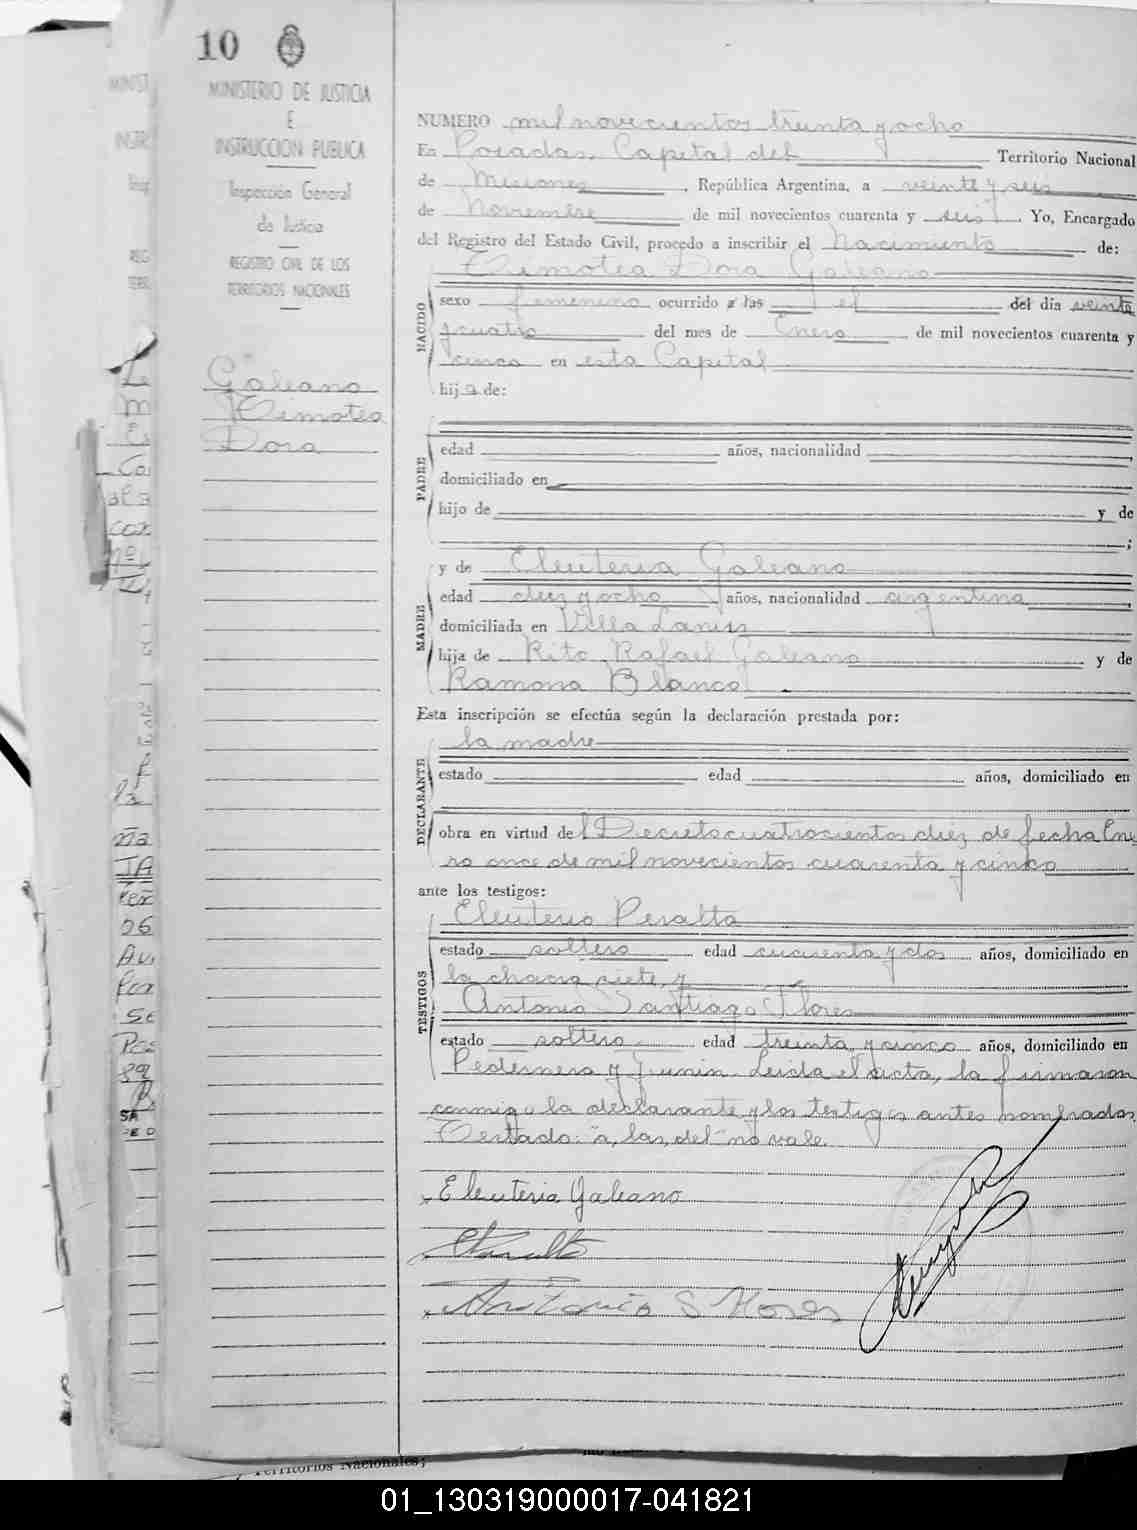 10
MINISTERIO DE JUSTICIA
E
INSTRUCCION PUBLICA
Inspección General
de Justicia
REGISTRO CIVIL DE LOS
TERRITORIOS NACIONALES
Galeano
Timotea
Dora
NUMERO mil novecientos treinta y ocho
En Posadas, Capital del Territorio Nacional
de Misiones, República Argentina, a veinte y seis
de Noviembre de mil novecientos cuarenta y seis Yo, Encargado
del Registro del Estado Civil, procedo a inscribir el Nacimiento de:
Timotea Dora Galeano
NACIDO
sexo femenino ocurrido a las el del día veinte
y cuatro del mes de Enero de mil novecientos cuarenta y
cinco en esta Capital
hija de:
PADRE
edad años, nacionalidad
domiciliado en
hijo de y de
;
y de Eleuteria Galeano
MADRE
edad diez y ocho años, nacionalidad argentina
domiciliada en Villa Lanús
hija de Rito Rafael Galeano y de
Ramona Blanco
Esta inscripción se efectúa según la declaración prestada por:
la madre
DECLARANTE
estado edad años, domiciliado en
obra en virtud del Decreto cuatrocientos diez de fecha Ene
ro once de mil novecientos cuarenta y cinco
ante los testigos:
Eleuterio Peralta
TESTIGOS
estado soltero edad cuarenta y dos años, domiciliado en
la chacra siete, y
Antonio Santiago Flores
estado soltero edad treinta y cinco años, domiciliado en
Pedernera y Junin. Leida el acta, la firmaron
conmigo la declarante y los testigos antes nombrados
Testado: "a, las, del" no vale.
Eleuteria Galeano
Antonio S Flores
Territorios Nacionales;
01_130319000017-041821